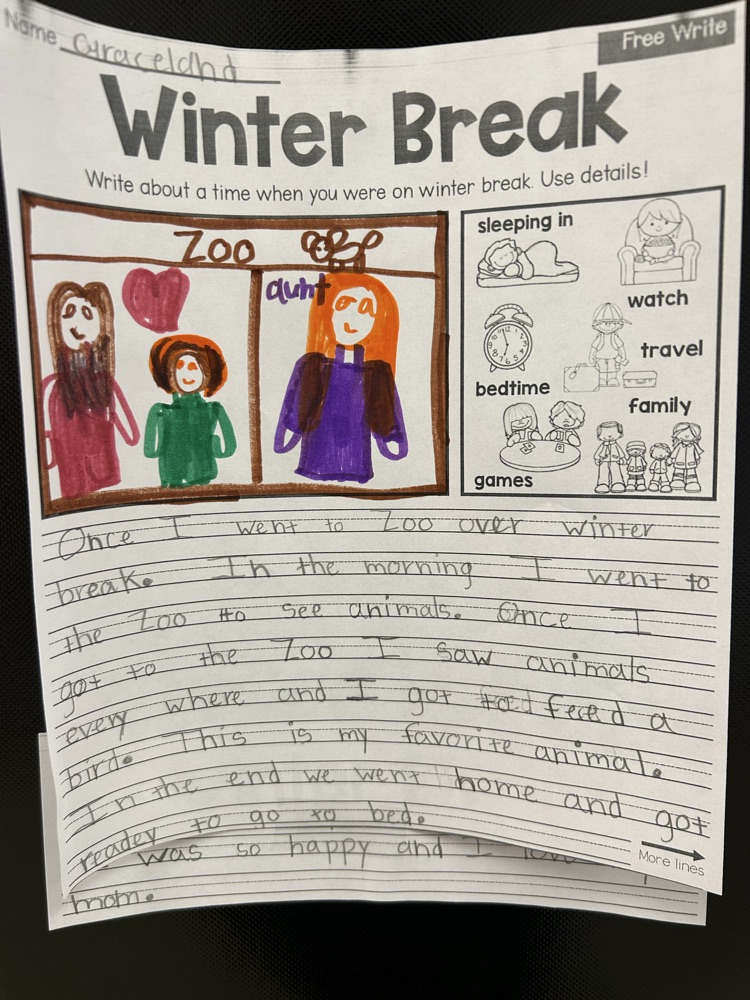 Name Graceland
Free Write
Winter Break
Write about a time when you were on winter break. Use details!
Zoo
aunt
sleeping in
watch
travel
bedtime
family
games
Once I went to Zoo over winter
break. In the morning I went to
the Zoo to see animals. Once I
got to the Zoo I saw animals
every where and I got feed a
bird. This is my favorite animal.
In the end we went home and got
readey to go to bed.
was so happy and I
More lines
mom.